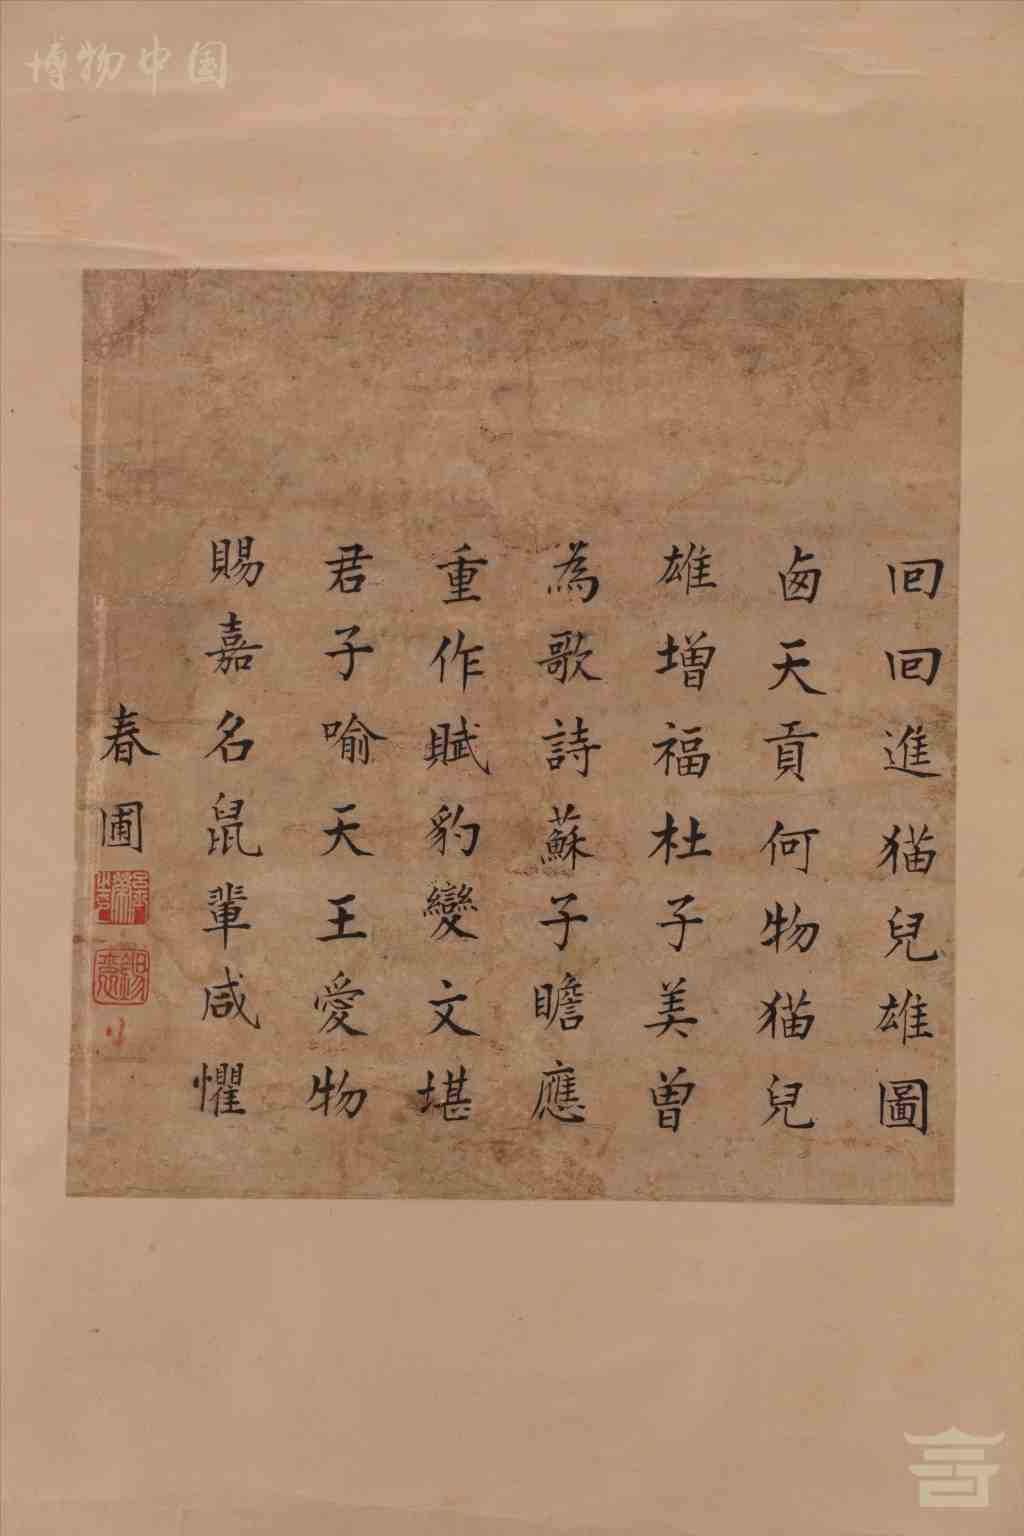 回回進猫兒雄圖
囪天貢何物猫兒
雄增福杜子美曾
為歌詩蘇子瞻應
重作賦豹變文堪
君子喻天王愛物
賜嘉名鼠輩咸懼
春圃
博物中国